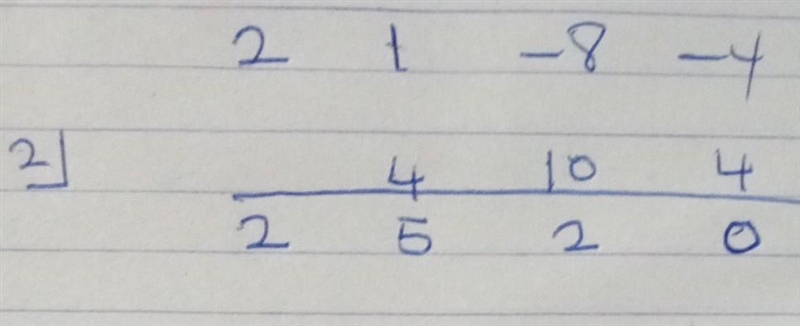 2 1 -8 -4
2 4 10 4
2 5 2 0